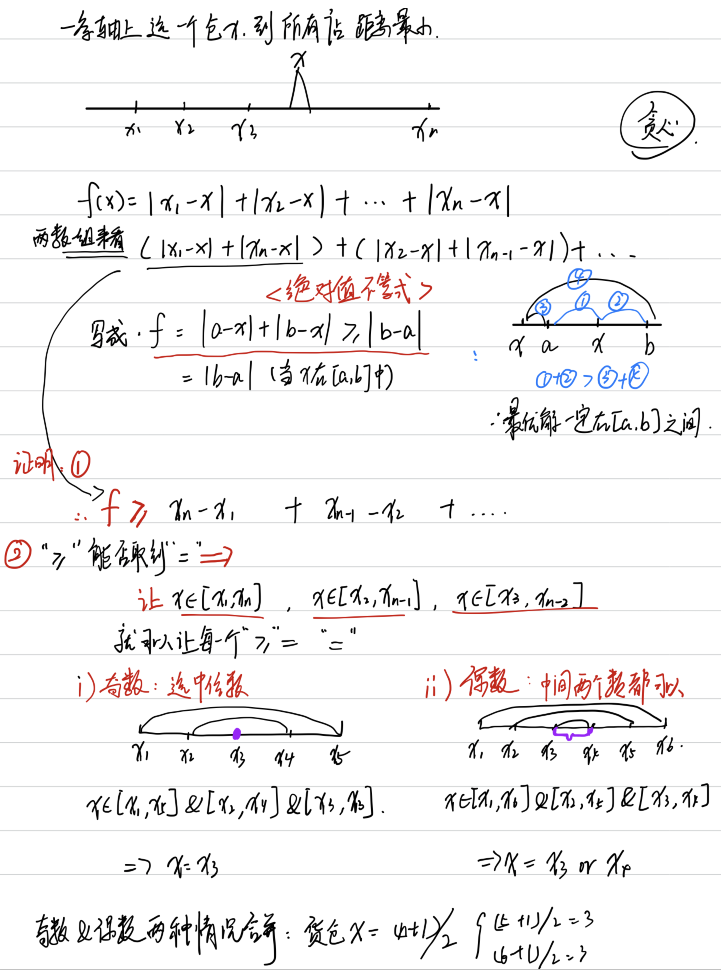 一条轴上选一个仓x,到所有店距离最小.
x
x₁ x₂ x₃ xₙ
贪心.
f(x)= |x₁-x| +|x₂-x| + ⋯ + |xₙ-x|
两数一组来看 (|x₁-x| + |xₙ-x|) + (|x₂-x| + |xₙ₋₁-x|) + ⋯
<绝对值不等式>
写成: f = |a-x|+|b-x| ≥ |b-a|
= |b-a| (当x在[a,b]中)
④
③ ① ②
x a x b
①+②>③+④
∴最优解一定在[a,b]之间.
证明: ①
∴ f ≥ xₙ-x₁ + xₙ₋₁-x₂ + ....
② "≥" 能否取到 "=" ⇒
让 x∈[x₁,xₙ] , x∈[x₂,xₙ₋₁] , x∈[x₃,xₙ₋₂]
就可以让每一个"≥"= "="
i) 奇数: 选中位数
x₁ x₂ x₃ x₄ x₅
x∈[x₁,x₅]&[x₂,x₄]&[x₃,x₃].
=> x=x₃
ii) 偶数: 中间两个数都可以
x₁ x₂ x₃ x₄ x₅ x₆.
x∈[x₁,x₆]&[x₂,x₅]&[x₃,x₄]
=> x = x₃ or x₄
奇数&偶数两种情况合并: 货仓x= (n+1)/2 { (5+1)/2=3
(6+1)/2=3